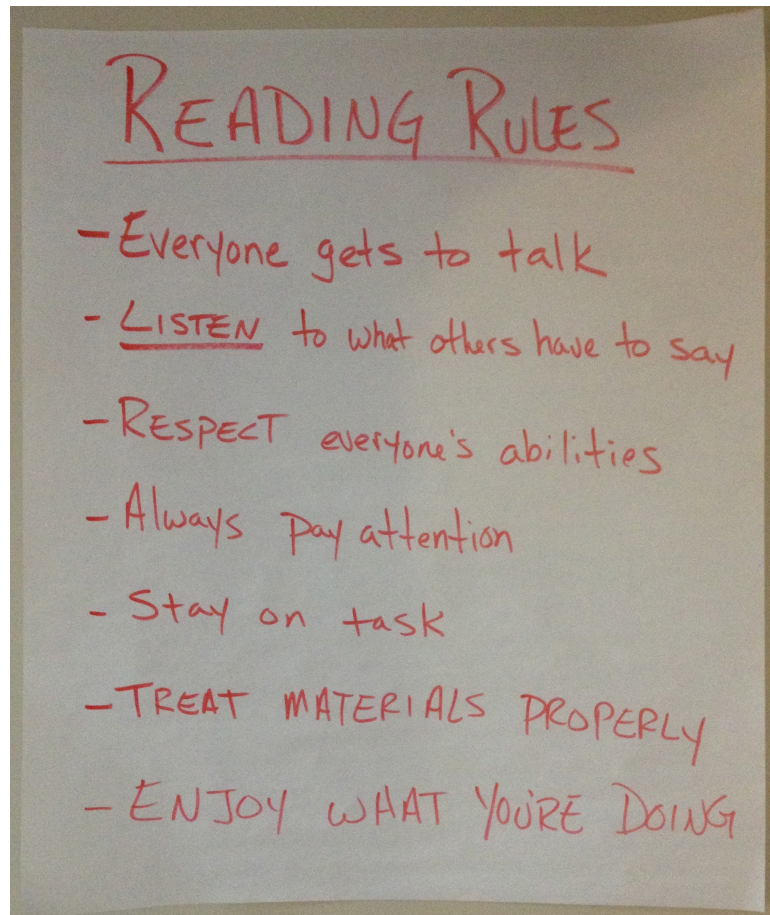 READING RULES
- Everyone gets to talk
- LISTEN to what others have to say
- RESPECT everyone's abilities
- Always pay attention
- Stay on task
- TREAT MATERIALS PROPERLY
- ENJOY WHAT YOU'RE DOING